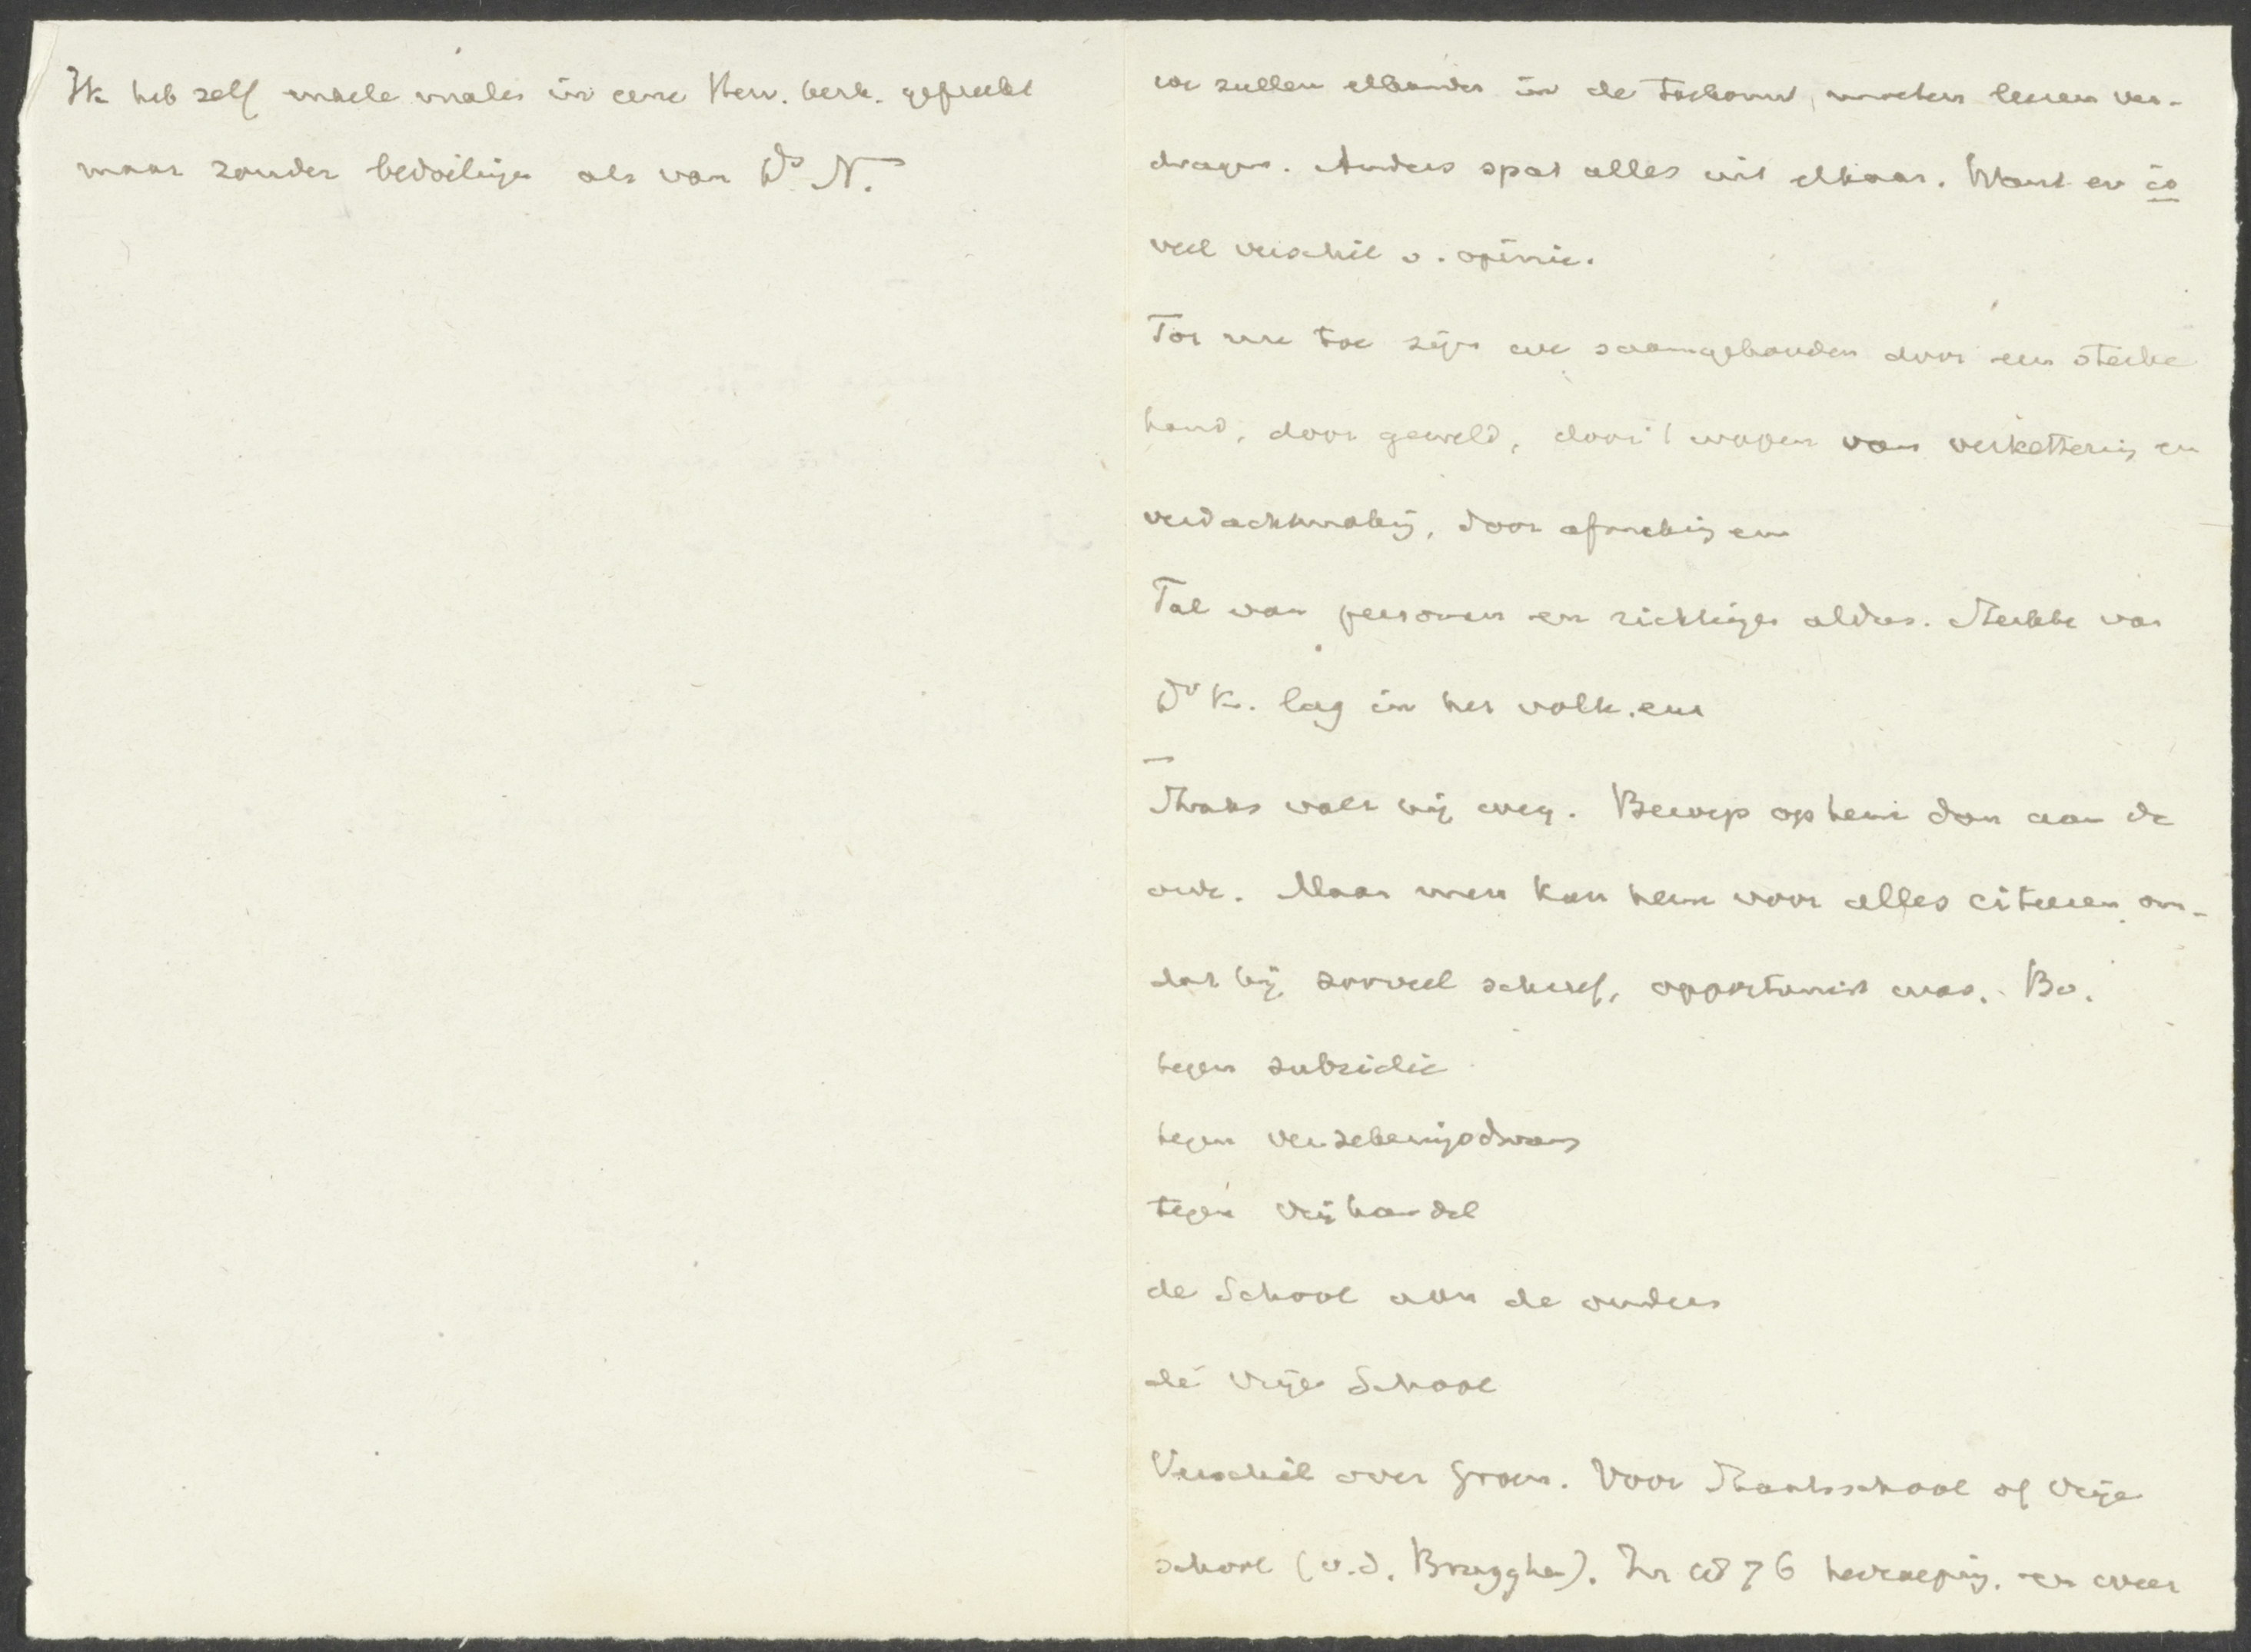 Ik heb zelf enkele malen in eene Herv. kerk. gepreekt
maar zonder bedoelingen als van Ds N.
we zullen elkander in de toekomst, moeten leeren ver-
dragen. Anders spat alles uit elkaar. Want er is
veel verschil v. opinie.
Tot nu toe zijn we saamgehouden door een sterke
hand, door geweld, door 't wapen van verkettering en
verdachtmaking, door afmaking van
Tal van personen en richtingen aldus. Sterkte van
Dr K. lag in het volk.
Thans valt hij weg. Beroep op hem dan aan de
orde. Maar men kan hem voor alles citeeren om-
dat hij zooveel schreef, opportunist was. Bv.
tegen subsidie
tegen verzekeringsdwang
tegen vrijhandel
de School aan de ouders
de vrije School
Verschil over Groen. Voor Staatsschool of vrije
school (v.d. Brugghen). In 1876 herroeping. en weer